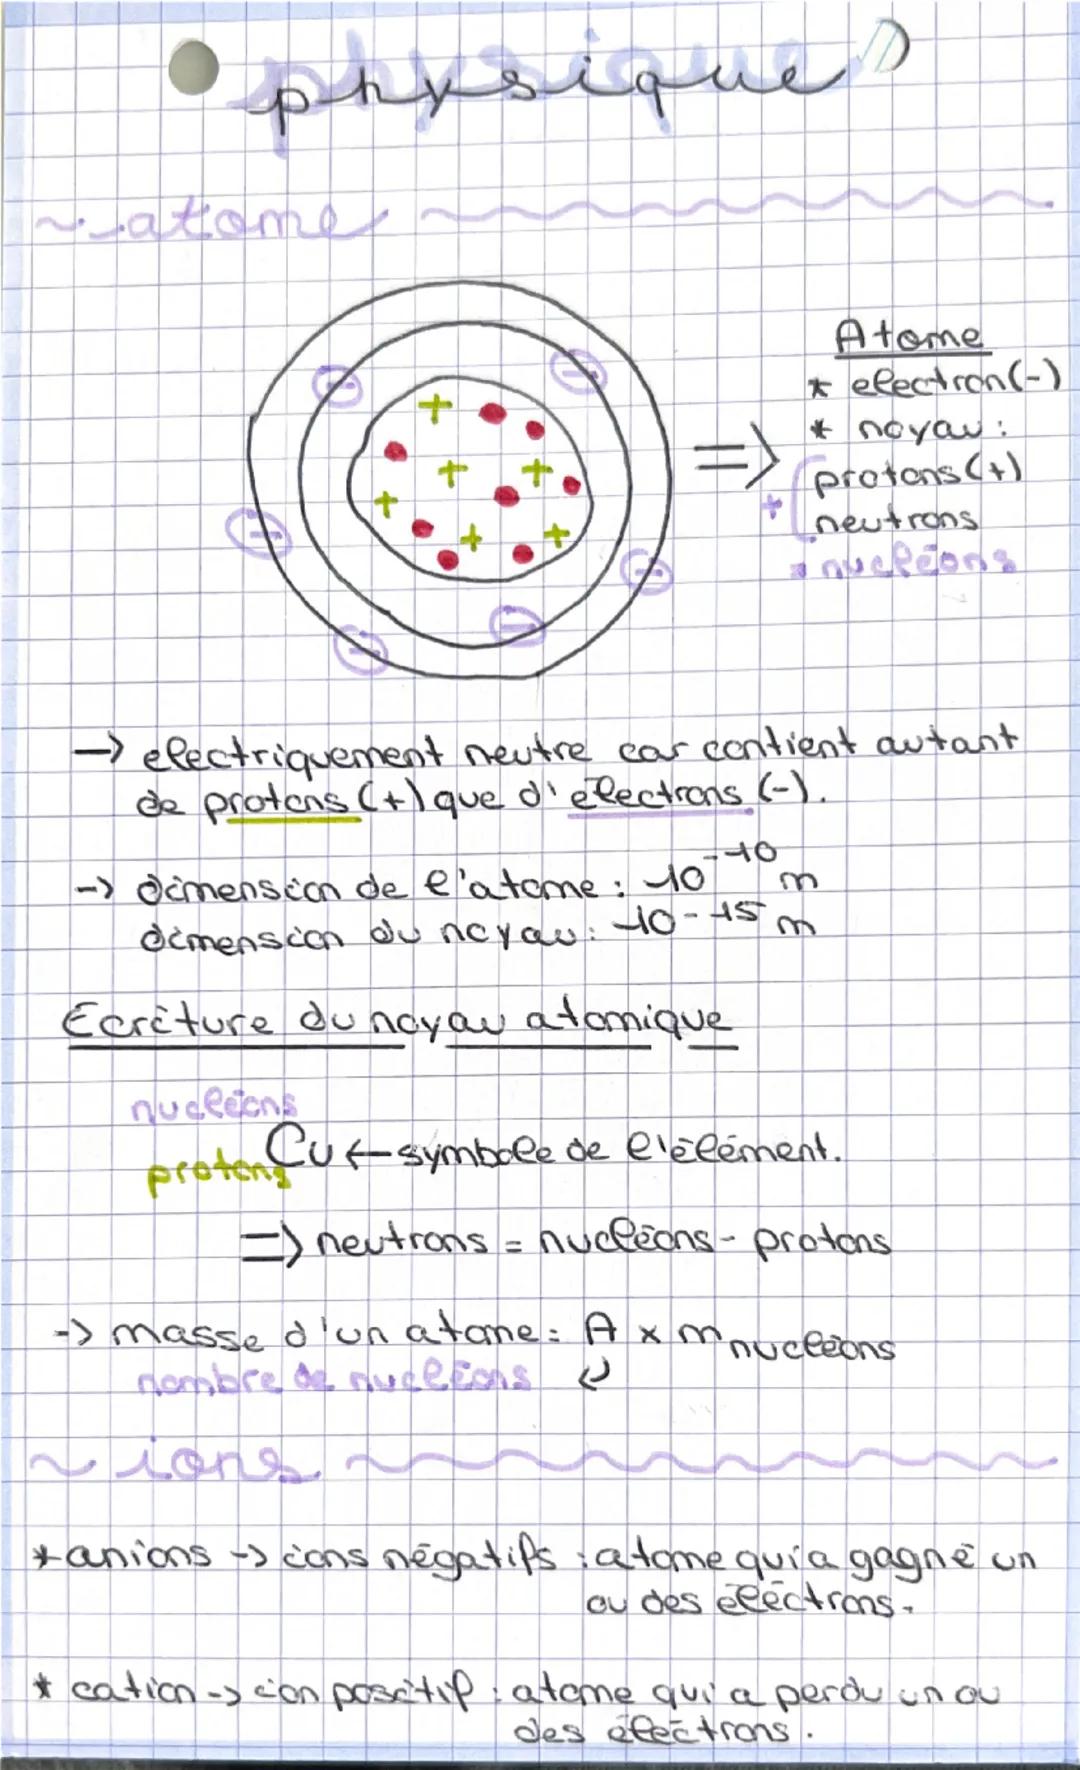 physique
atome
Atome
* electron(-)
* noyau:
protons(+)
+
neutrons
= nucléons
-> electriquement neutre car contient autant
de protons (+) que d'électrons (-).
-> dimension de l'atome : 10^-10 m
dimension du noyau: 10^-15 m
Ecriture du noyau atomique
nucléons
Cu <- symbole de l'élément.
protons
=> neutrons = nucléons - protons
-> masse d'un atome = A x m nucléons
nombre de nucléons
ions
* anions -> ions négatifs : atome qui a gagné un
ou des électrons.
* cation -> ion positif : atome qui a perdu un ou
des électrons.